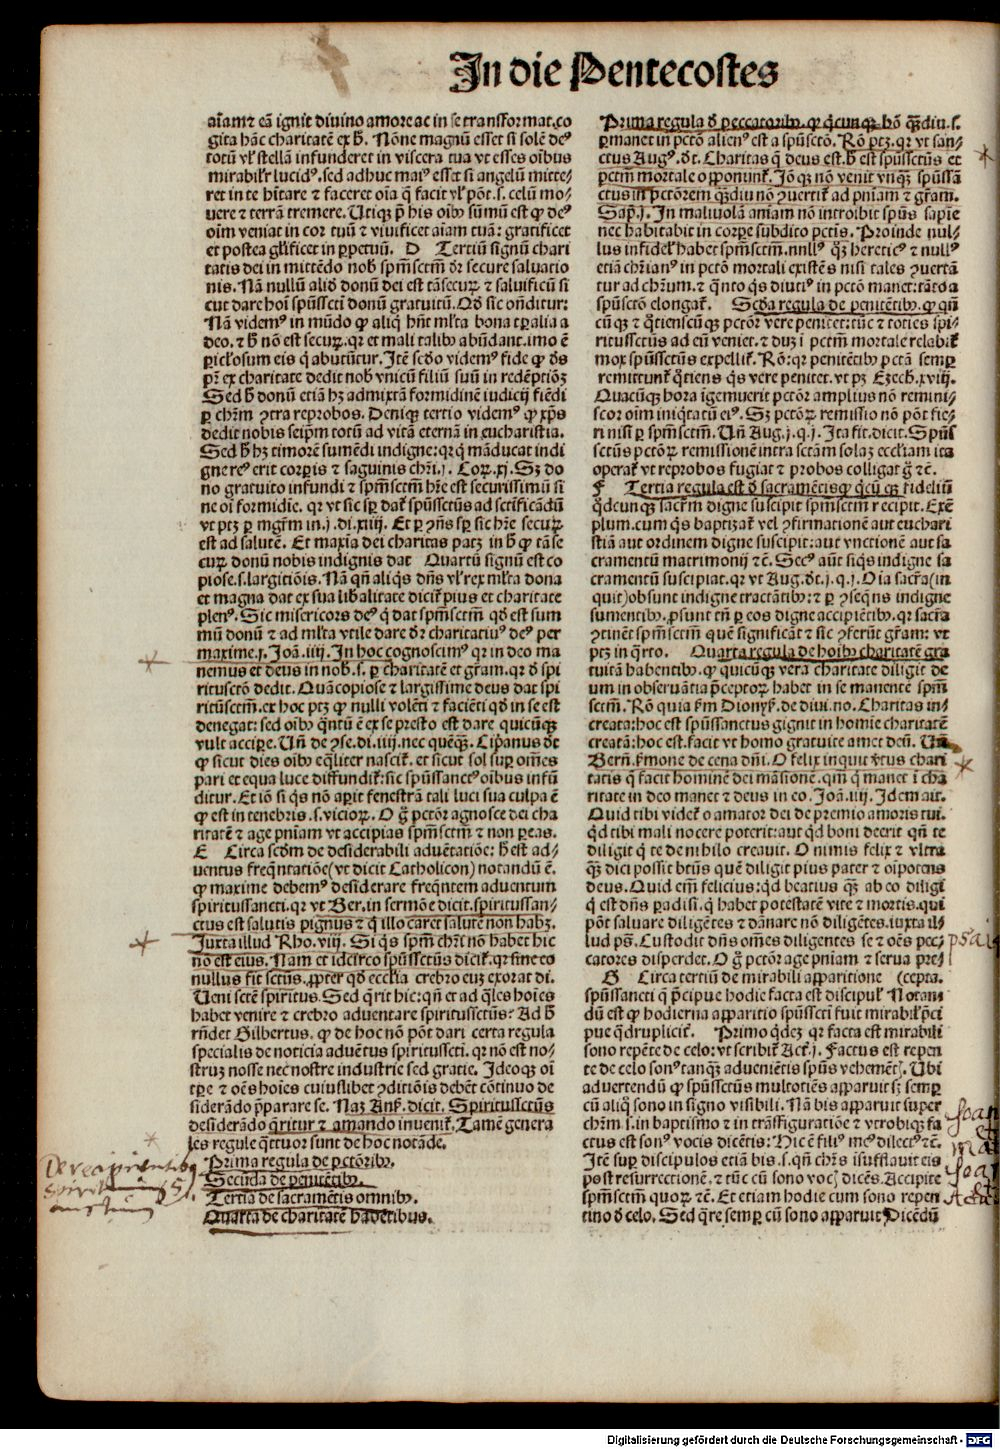 In die Pentecostes
aīam ⁊ eā ignit diuino amore ac in se transformat. co
gita hāc charitatē ex ħ. Nōne magnū esset si solē deꝰ
totū vl' stellā infunderet in viscera tua vt esses oībus
mirabilr̄ lucidꝰ. sed adhuc maiꝰ esset si angelū mitte⸗
ret in te hītare ⁊ faceret oīa q̄ facit vl' pōt. s. celū mo⸗
uere ⁊ terrā tremere. Utiqꝫ p̄ his oībꝰ sūmū est ꝙ deꝰ
oīm veniat in cor tuū ⁊ viuificet aīam tuā: gratificet
et postea gl'ificet in ꝑpetuū. D Tertiū signū chari
tatis dei in mittēdo nob̄ spm̄sctm̄ dr̄ secure saluatio
nis. Nā nullū aliđ donū dei est tā secuꝝ ⁊ saluificū si
cut dare hoī spūsscti donū gratuitū. Qđ sic oñditur:
Nā videmꝰ in mūdo ꝙ aliq̄ hn̄t ml'ta bona tp̄alia a
deo. ⁊ ħ nō est secuꝝ. qr et mali talibꝰ abūdant. imo ē
ꝑicl'osum eis q̄ abutūtur. Itē scđo videmꝰ fide ꝙ ds̄
pr̄ ex charitate dedit nob̄ vnicū filiū suū in redēptiōꝫ
Sed ħ donū etiā hꝫ admixtā formidinē iudicij fiēdi
ꝑ chm̄ ꝯtra reprobos. Deniqꝫ tertio videmꝰ ꝙ xp̄s
dedit nobis seip̄m totū ad vitā eternā in eucharistia.
Sed ħ hꝫ timorē sumēdi indigne: qr q̄ māducat indi
gne reꝰ erit corꝑis ⁊ saguinis chr̄i. j. Coꝝ. xj. Sꝫ do
no gratuito infundi ⁊ spm̄sctm̄ hr̄e est securissimū si
ne oī formidie. qr vt sic sꝑ dat̄ spūssctūs ad sctificādū
vt ptꝫ ꝑ mgr̄m in. j. di. xiiij. Et ꝑ ꝯn̄s sꝑ sic hr̄e secuꝝ
est ad salutē. Et maxīa dei charitas patꝫ in ħ ꝙ tā se
cuꝝ donū nobis indignis dat Quartū signū est co
piose. s. largitiōis. Nā qn̄ aliq̄s dn̄s vl' rex ml'ta dona
et magna dat ex sua lib̄alitate dicit̄ pius et charitate
plenꝰ. Sic misericors deꝰ q̄ dat spm̄sctm̄ qđ est sum
mū donū ⁊ ad ml'ta vtile dare dr̄ charitatiuꝰ deꝰ per
maxime. j. Joā. iiij. In hoc cognoscimꝰ qr in deo ma
nemus et deus in nob̄. s. ꝑ charitatē et gr̄am. qr đ spi
ritusctō dedit. Quā copiose ⁊ largissime deus dat spi
ritūsctm̄. ex hoc ptꝫ ꝙ nulli volēti ⁊ faciēti qđ in se est
denegat: sed oībꝰ q̄ntū ē ex se presto est dare quicūqꝫ
vult accipe. Un̄ de ꝯse. di. iiij. nec quēqꝫ. Cip̄anus dt̄
ꝙ sicut dies oībꝰ eq̄liter nascit̄. et sicut sol suꝑ oīmes
pari et equa luce diffundit̄: sic spūssanctꝰ oībus infū
ditur. Et iō si q̄s nō aꝑit fenestrā tali luci sua culpa ē
ꝙ est in tenebris. s. vicioꝝ. O g̊ pctōr agnosce dei cha
ritatē ⁊ age pn̄iam vt accipias spm̄sctm̄ ⁊ non ꝑeas.
E Circa scđm de desiderabili aduētatiōe: ħ est ad⸗
uentus freq̄ntatiōe (vt dicit Catholicon) notandū ē.
ꝙ maxime debemꝰ desiderare freq̄ntem aduentum
spiritussancti. qr vt Ber. in sermōe dicit. spiritussan⸗
ctus est salutis pignus ⁊ q̄ illo caret salutē non habꝫ.
Juxta illud Rho. viij. Si q̄s spm̄ chr̄i nō habet hic
nō est eius. Nam et idcirco spūssctūs dicit̄. qr sine eo
nullus fit sctūs. ꝓpter qđ eccl'ia crebro eū exorat di.
Ueni sctē spiritus. Sed q̄rit hic: qn̄ et ad q̄les hoīes
habet venire ⁊ crebro aduentare spiritussctūs: Ad ħ
rn̄det Gilbertus. ꝙ de hoc nō pōt dari certa regula
specialis de noticia aduētus spiritusscti. qr nō est no⸗
struꝫ nosse nec nostre industrie sed gratie. Ideoqꝫ oī
tꝑe ⁊ oēs hoīes cuiuslibet ꝯditiōis debēt cōtinuo de
siderādo p̄parare se. Naꝫ Anẜ. dicit. Spiritussctūs
desiderādo q̄ritur ⁊ amando inuenit̄. Tamē genera
les regule q̄ttuor sunt de hoc notāde.
Prima regula de pctōribꝰ.
Secūda de penitētibꝰ.
Tertia de sacramētis omnibꝰ.
Quarta de charitatē habētibus.
De recipientibꝰ
Prima regula đ peccatoribꝰ. ꝙ q̄cunqꝫ hō qꝫdiu. s.
ꝑmanet in pctō alienꝰ est a spūsctō. Rō ptꝫ. qr vt san⸗
ctus Augꝰ. dt̄. Charitas q̄ deus est. ħ est spūssctūs et
pctm̄ mortale opponunt̄. Iō qꝫ nō venit vnqꝫ spūssā
ctus in pctōrem qꝫdiu nō ꝯuertit̄ ad pn̄iam ⁊ gr̄am.
Sap̄. j. In maliuolā animā nō introibit spūs sapīe
nec habitabit in corꝑe subdito pctīs. Proinde nul⸗
lus infidel' habet spm̄sctm̄. nullꝰ qꝫ hereticꝰ ⁊ nullꝰ
etiā chr̄ianꝰ in pctō mortali existēs nisi tales ꝯuertā
tur ad chr̄um. ⁊ q̄nto q̄s diutiꝰ in pctō manet: tāto a
spūsctō elongat̄. Scđa regula de penitētibꝰ. ꝙ qn̄
cūqꝫ ⁊ q̄tienscūqꝫ pctōr vere penitet: tūc ⁊ toties spi⸗
ritussctūs ad eū veniet. ⁊ dūꝫ ī pctm̄ mortale relabit̄
mox spūssctūs expellit̄. Rō: qr penitētibꝰ pctā semꝑ
remittunt̄ q̄tiens q̄s vere penitet. vt pꝫ Ezech. xviij.
Quacūqꝫ hora īgemuerit pctōr amplius nō remini⸗
scor oīm iniq̄tatū eiꝰ. Sꝫ pctōꝝ remissio nō pōt fie⸗
ri nisi ꝑ spm̄sctm̄. Un̄ Aug. j. q. j. Ita fit. dicit. Spūs
sctūs pctōꝝ remissionē intra sctam solaꝫ eccl'iam ita
operat̄ vt reprobos fugiat ⁊ probos colligat g̊ ⁊c̄.
F Tertia regula est đ sacramētis ꝙ q̄cūqꝫ fideliū
q̄dcunqꝫ sacr̄m digne suscipit spm̄sctm̄ recipit. Exē
plum. cum q̄s baptizat̄ vel ꝯfirmationē aut euchari
stiā aut ordinem digne suscipit: aut vnctionē aut sa
cramentū matrimonij ⁊c̄. Secꝰ aūt siq̄s indigne sa
cramentū suscipiat. qr vt Aug. dt̄. j. q. j. Oīa sacr̄a (in
quit) obsunt indigne tractātibꝰ: ⁊ ꝑ ꝯseq̄ns indigne
sumentibꝰ. ꝓsunt tn̄ ꝑ eos digne accipiētibꝰ. qr sacr̄a
ꝯtinēt spm̄sctm̄ quē significāt ⁊ sic ꝯferūt gr̄am: vt
ptꝫ in q̄rto. Quarta regula de hoībꝰ charitatē gra
tuitā habentibꝰ. ꝙ quicūqꝫ vera charitate diligit de
um in obseruātia p̄ceptoꝝ habet in se manentē spm̄
sctm̄. Rō quia ẜm Dionyẜ. de diui. no. Charitas in⸗
creata: hoc est spūssanctus gignit in homīe charitatē
creatā: hoc est. facit vt homo gratuite amet deū. Un̄
Bern̄. ẜmone de cena dn̄i. O felix inquit v̄tus chari
tatis q̄ facit hominē dei māsionē. qm̄ q̄ manet ī cha
ritate in deo manet ⁊ deus in eo. Joā. iiij. Idem ait.
Quid tibi videt̄ o amator dei de premio amoris tui.
q̄d tibi mali nocere poterit: aut q̄d boni deerit qn̄ te
diligit q̄ te de nihilo creauit. O nimis felix ⁊ vltra
qꝫ dici possit btūs quē diligit pius pater ⁊ oīpotens
deus. Quid em̄ felicius: q̄d beatius qꝫ ab eo diligi
q̄ est dn̄s ꝑadisi. q̄ habet potestatē vite ⁊ mortis. qui
pōt saluare diligētes ⁊ dānare nō diligētes. iuxta il⸗
lud pꝰ. Custodit dn̄s om̄es diligentes se ⁊ oēs pec⸗
catores disperdet. O g̊ pctōr age pn̄iam ⁊ serua pre⸗
G Circa tertiū de mirabili apparitione (cepta.
spūssancti q̄ p̄cipue hodie facta est discipul' Notan⸗
dū est ꝙ hodierna apparitio spūsscti fuit mirabil' p̄ci
pue q̄druplicit̄. Primo q̄deꝫ qr facta est mirabili
sono repēte de celo: vt scribit̄ Act̄. j. Factus est repen
te de celo sonꝰ tanqꝫ adueniētis spūs vehemēt̄. Ubi
aduertendū ꝙ spūssctūs multotiēs apparuit sꝫ semꝑ
cū aliq̄ sono in signo visibili. Nā bis apparuit super
chm̄. s. in baptismo ⁊ in trāsfiguratiōe ⁊ vtrobiqꝫ fa
ctus est sonꝰ vocis dicētis: Hic ē filiꝰ meꝰ dilectꝰ ⁊c̄.
Itē suꝑ discipulos etiā bis. s. qn̄ chr̄s īsufflauit eis
post resurrectionē. ⁊ tūc cū sono vocꝭ dicēs. Accipite
spm̄sctm̄ quoꝝ ⁊c̄. Et etiam hodie cum sono repen
tino đ celo. Sed q̄re semꝑ cū sono apparuit Dicēdū
Digitalisierung gefördert durch die Deutsche Forschungsgemeinschaft - DFG